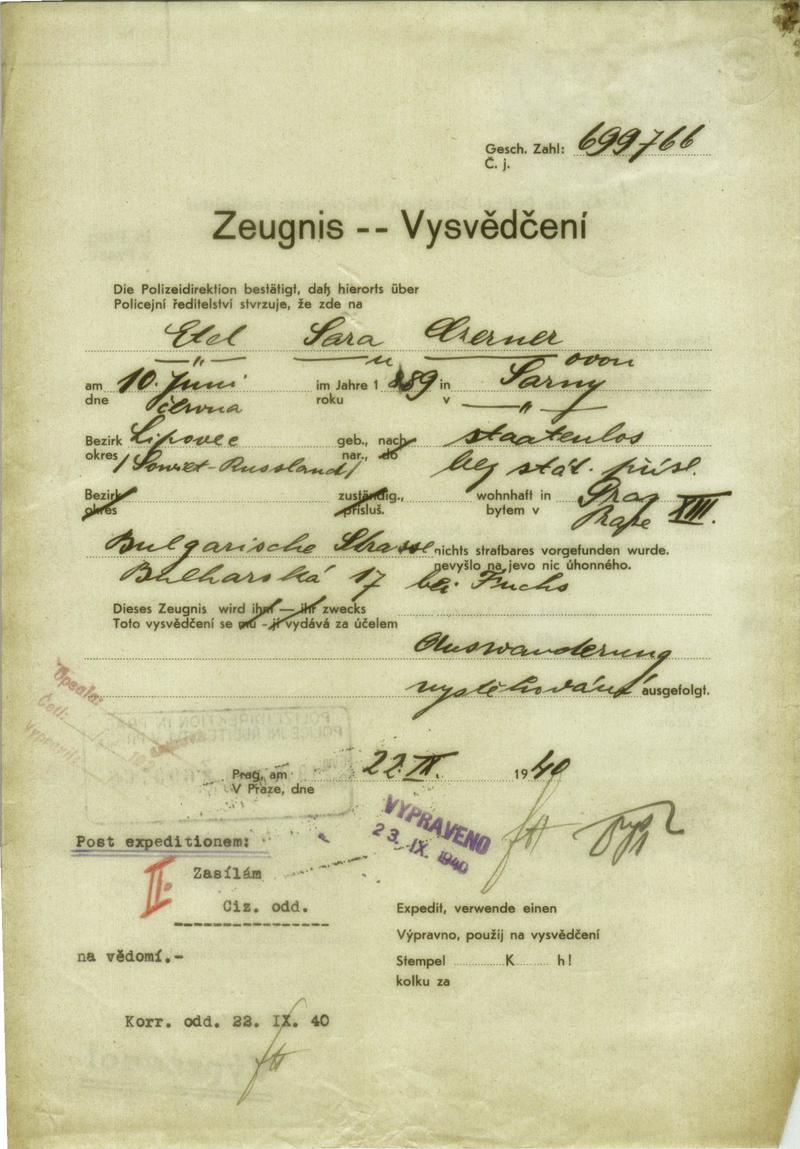 Gesch. Zahl: 699766
Č. j.
Zeugnis -- Vysvědčení
Die Polizeidirektion bestätigt, daß hierorts über
Policejní ředitelství stvrzuje, že zde na
Etel Sara Czerner
— " — — " — ová
am 10. Juni im Jahre 1 889 in Sarny
dne června roku v — " —
Bezirk Lipovec geb., nach staatenlos
okres /Sowjet-Russland/ nar., do bez stát. přísl.
Bezirk zuständig., wohnhaft in Prag XIII.
okres přísluš. bytem v Praze
Bulgarische Strasse nichts strafbares vorgefunden wurde.
Bulharská 17 bei Fuchs nevyšlo na jevo nic úhonného.
Dieses Zeugnis wird ihm — ihr zwecks
Toto vysvědčení se mu - jí vydává za účelem
Auswanderung
vystěhování ausgefolgt.
Opsala:
Četl:
Vypravila:
POLIZEIDIREKTION IN PRAG
POLICEJNÍ ŘEDITELSTVÍ V PRAZE
Prag, am 22. IX. 19 40
V Praze, dne
VYPRAVENO
23. IX. 1940
Post expeditionem:
II.
Zasílám
Ciz. odd.
na vědomí.-
Expedit, verwende einen
Výpravno, použij na vysvědčení
Stempel K h!
kolku za
Korr. odd. 22. IX. 40